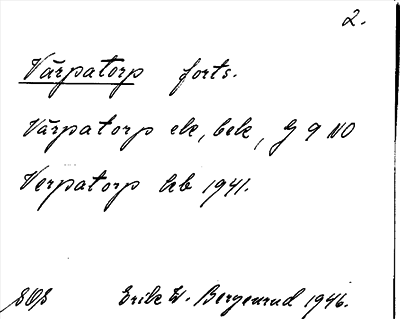 2.
Värpatorp forts.
Värpatorp ek, bek, G 9 NO
Verpatorp hb 1941.
SOS Erik W. Bergenrud 1946.